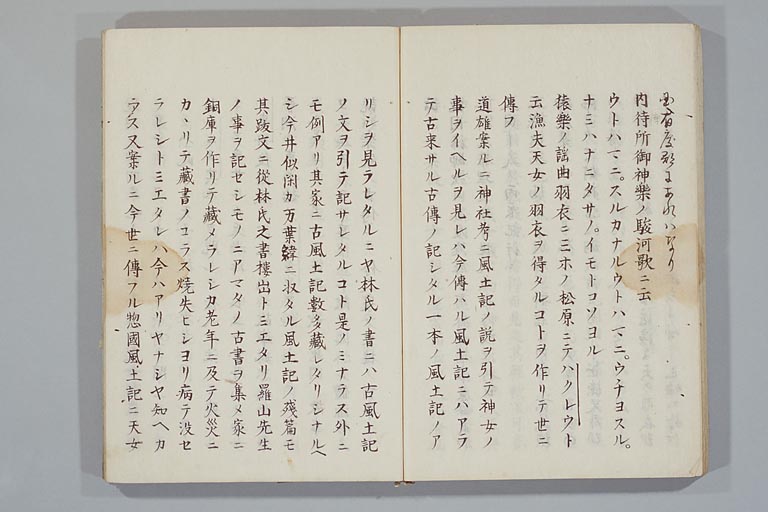 内待所御神樂ノ駿河歌ニ云
ウトハマニ。スルカナルウトハマニ。ウチヨスル。
ナミハナニタサノ。イモトコソヨル
猿樂ノ謡曲羽衣ニ三ホノ松原ニテハクレウト
云漁夫天女ノ羽衣ヲ得タルコトヲ作リテ世ニ
傳フ
道雄案ルニ神社考ニ風土記ノ説ヲ引テ神女ノ
事ヲイヘルヲ見レハ今傳ハル風土記ニハアラ
テ古来サル古傳ノ記シタル一本ノ風土記ノア
リシヲ見ラレタルニヤ林氏ノ書ニハ古風土記
ノ文ヲ引テ記サレタルコト是ノミナラス外ニ
モ例アリ其家ニ古風土記数多藏レタリシナルヘ
シ今井似閑カ万葉緯ニ収タル風土記ノ残篇モ
其跋文ニ從林氏之書樓出トミエタリ羅山先生
ノ事ヲ記セシモノニアマタノ古書ヲ集メ家ニ
銅庫ヲ作リテ藏メラレシカ老年ニ及テ火災ニ
カヽリテ藏書ノコラス焼失セシヨリ病テ没セ
ラレシトミエタレハ今ハアリヤナシヤ知ヘカ
ラス又案ルニ今世ニ傳フル惣國風土記ニ天女